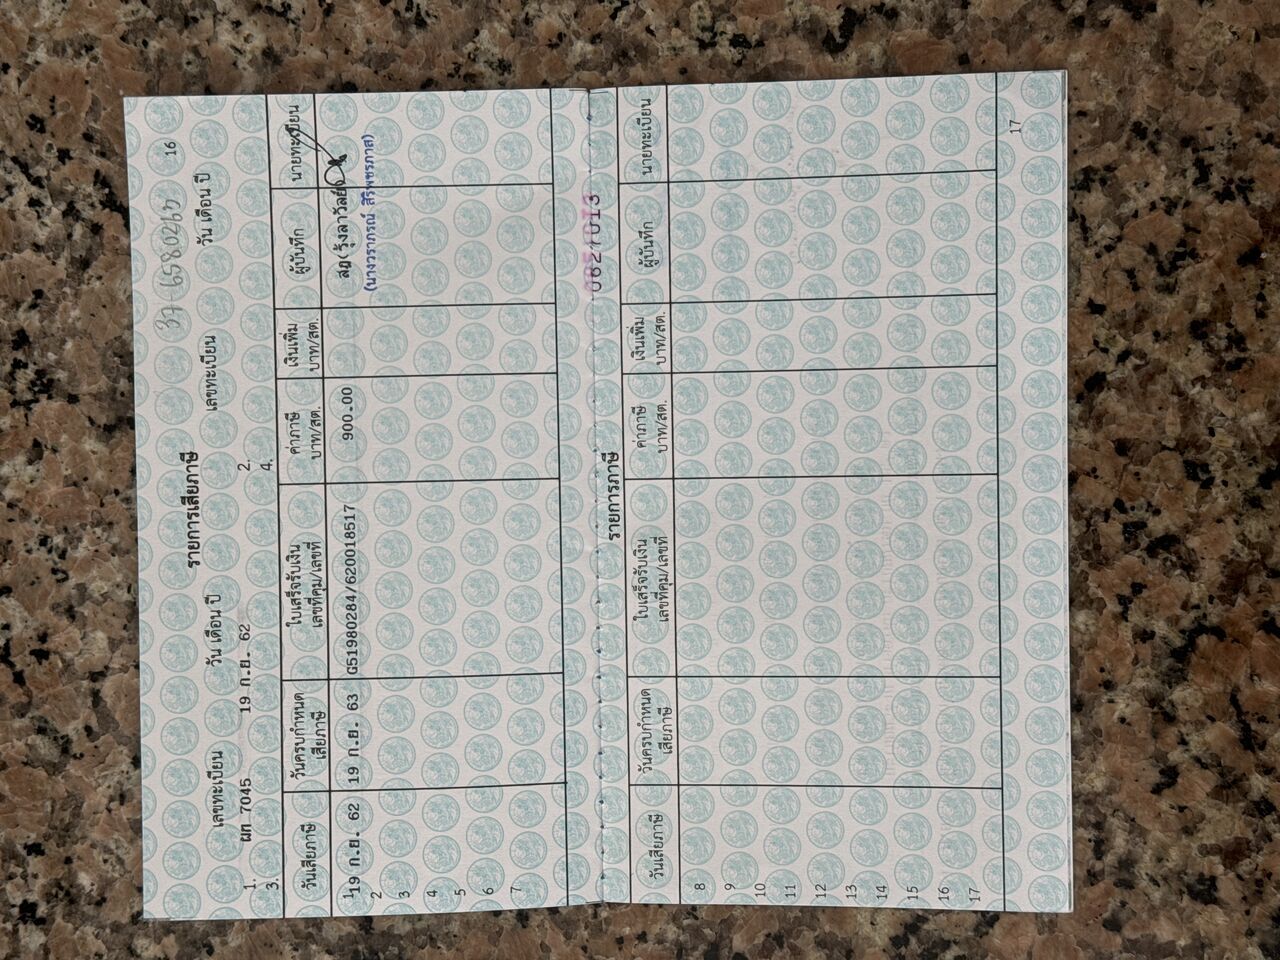 16
37-6580265
รายการเสียภาษี
เลขทะเบียน วัน เดือน ปี เลขทะเบียน วัน เดือน ปี
1. ผก 7045 19 ก.ย. 62 2.
3. 4.
วันเสียภาษี วันครบกำหนดเสียภาษี ใบเสร็จรับเงิน เลขที่คุม/เลขที่ ค่าภาษี บาท/สต. เงินเพิ่ม บาท/สต. ผู้บันทึก นายทะเบียน
1 19 ก.ย. 62 19 ก.ย. 63 G51980284/620018517 900.00 สฎ(รุ้งลาวัลย์)
2 (นางวราภรณ์ สิริพชรภาส)
3
4
5
6
7
รายการภาษี
วันเสียภาษี วันครบกำหนดเสียภาษี ใบเสร็จรับเงิน เลขที่คุม/เลขที่ ค่าภาษี บาท/สต. เงินเพิ่ม บาท/สต. ผู้บันทึก นายทะเบียน
8
9
10
11
12
13
14
15
16
17
17